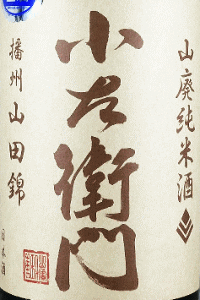 山廃純米酒
小左衛門
播州山田錦
日本酒